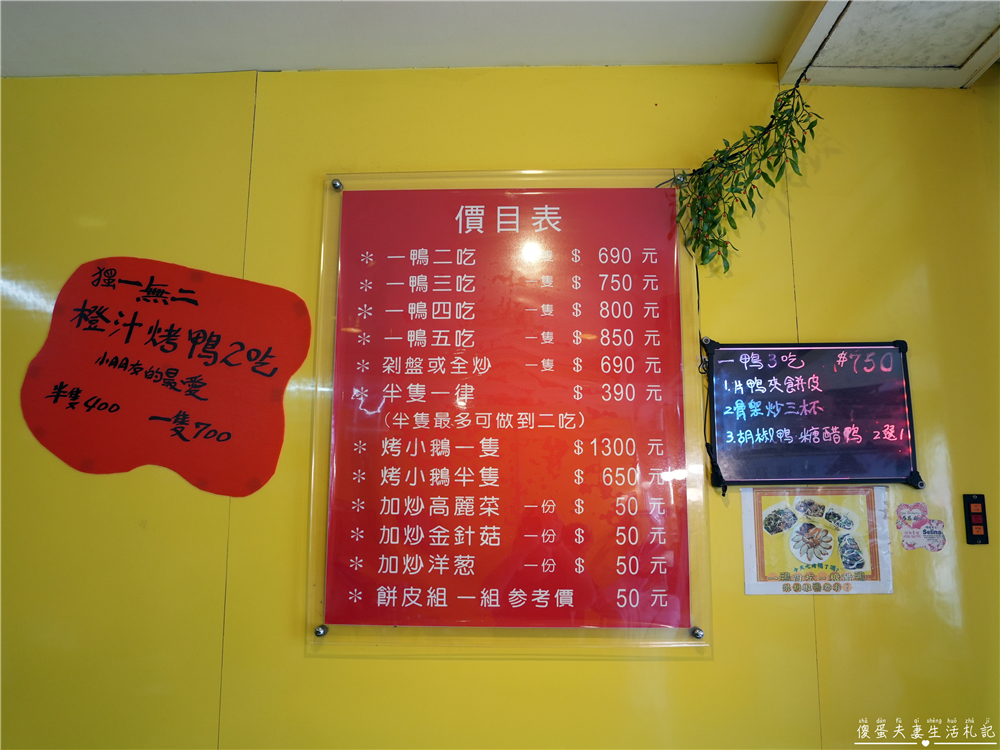 獨一無二
橙汁烤鴨2吃
小朋友的最愛
半隻400
一隻700
價目表
＊ 一鴨二吃 一隻 $ 690 元
＊ 一鴨三吃 一隻 $ 750 元
＊ 一鴨四吃 一隻 $ 800 元
＊ 一鴨五吃 一隻 $ 850 元
＊ 剁盤或全炒 一隻 $ 690 元
＊ 半隻一律 $ 390 元
（半隻最多可做到二吃）
＊ 烤小鵝一隻 $1300 元
＊ 烤小鵝半隻 $ 650 元
＊ 加炒高麗菜 一份 $ 50 元
＊ 加炒金針菇 一份 $ 50 元
＊ 加炒洋葱 一份 $ 50 元
＊ 餅皮組 一組 參考價 50 元
一鴨3吃 $750
1.片鴨夾餅皮
2骨架炒三杯
3.胡椒鴨.糖醋鴨 2選1
Selina
shǎ dàn fū qī shēng huó zhá jì
傻蛋夫妻生活札記